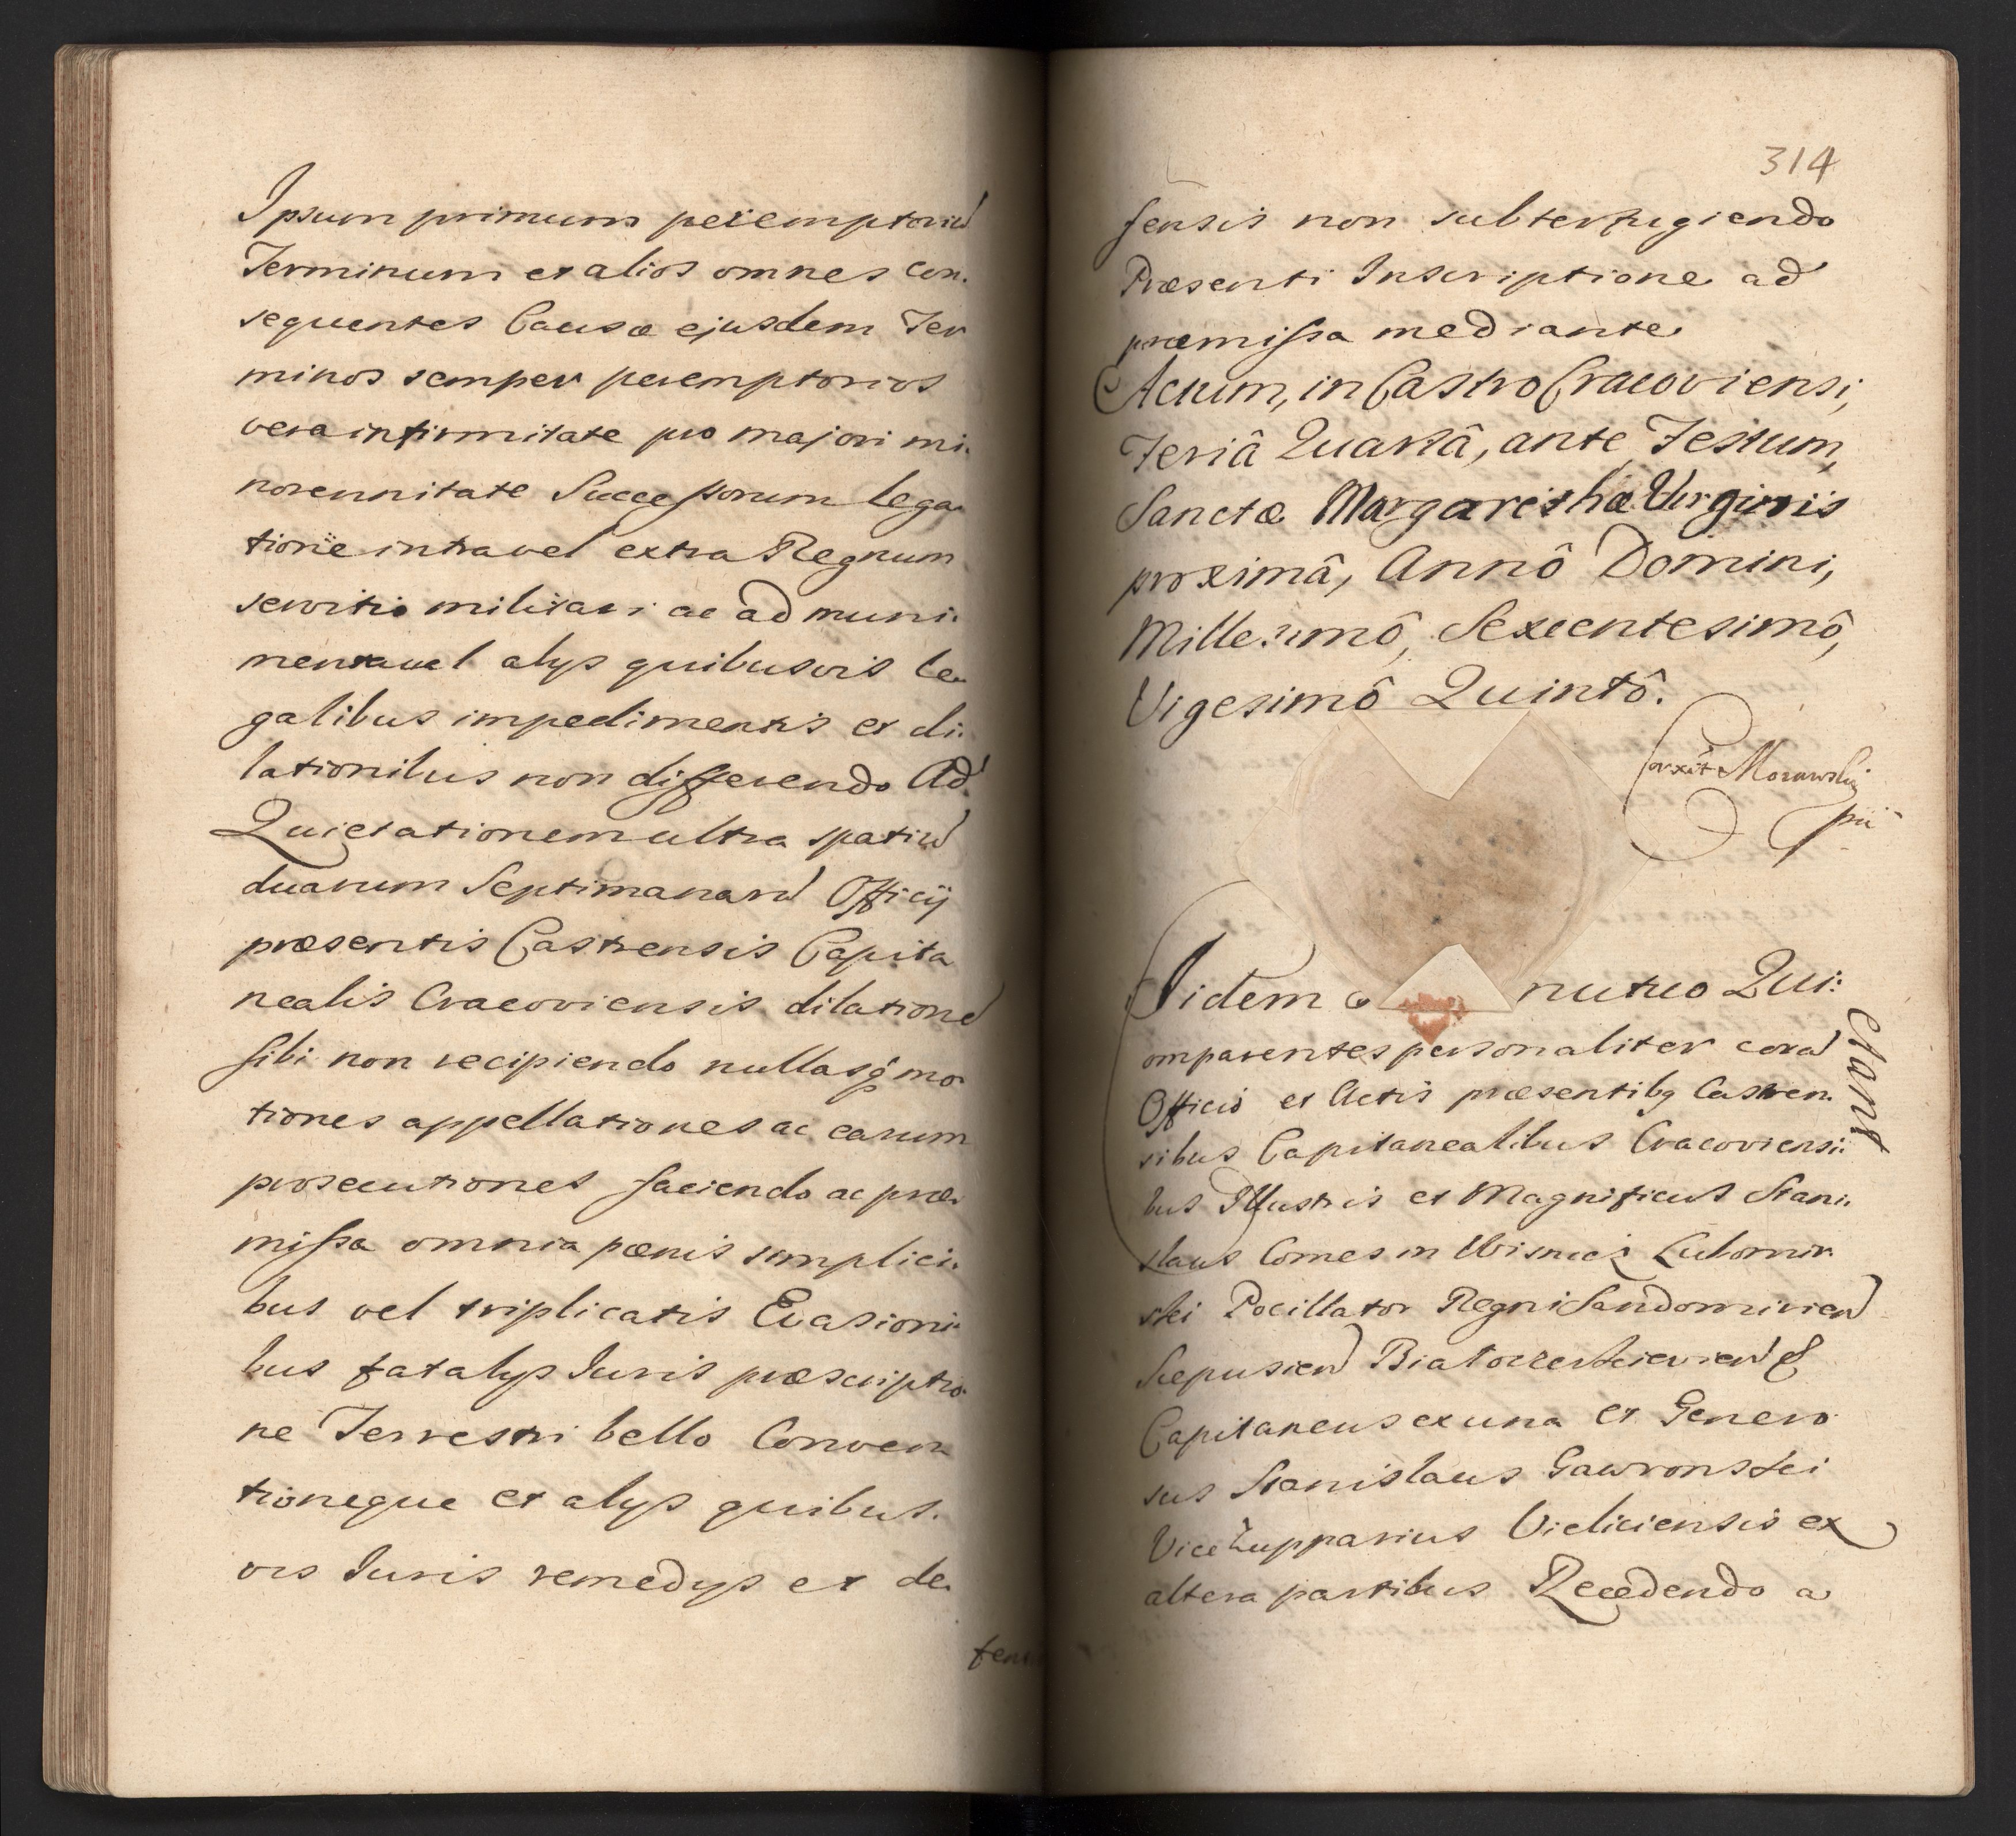 Ipsum primum peremptoriū
Terminum et alios omnes con.
sequentes Causæ ejusdem Ter
minos semper peremptorios
vera infirmitate pro majori mi.
norennitate Successorum lega
tione intra vel extra Regnum
servitio militari ac ad muni.
menta vel alys quibusvis le.
galibus impedimentis et di.
lationibus non differendo Ad
Quietationem ultra spatiū
duarum Septimanarū Officij
præsentis Castrensis Capita
nealis Cracoviensis dilationē
sibi non recipiendo nullasq́ mo
tiones appellationes ac earum
prosecutiones faciendo ac præ.
missa omnia pænis simplici.
bus vel triplicatis Evasioni.
bus fatalys Iuris præscriptio.
ne Terrestri bello Conven
tioneque et alys quibus.
vis Iuris remedys et de.
fen
314
fensis non subterfugiendo
Præsenti Inscriptione ad
præmissa mediante
Actum, in Castro Cracoviensi,
Feriâ Quartâ, ante Festum,
Sanctæ Margarethæ Virginis
proximâ, Annô Domini,
Millesimô, Sexcentesimô,
Vigesimô Quintô.
Corxit Morawski
Iidem nutuo Qui:
etant
omparentes personaliter corā
Officio et Actis præsentibq Castren.
sibus Capitanealibus Cracoviensi:
bus Illustris et Magnificus Stani.
slaus Comes in Wisnicz Lubomir
ski Pocillator Regni Sandomirien̄
Scepusien̄ Białocerkievien̄ &
Capitaneus ex una et Genero
sus Stanislaus Gawronski
Vice Zupparius Vieliciensis ex
altera partibus Recedendo a